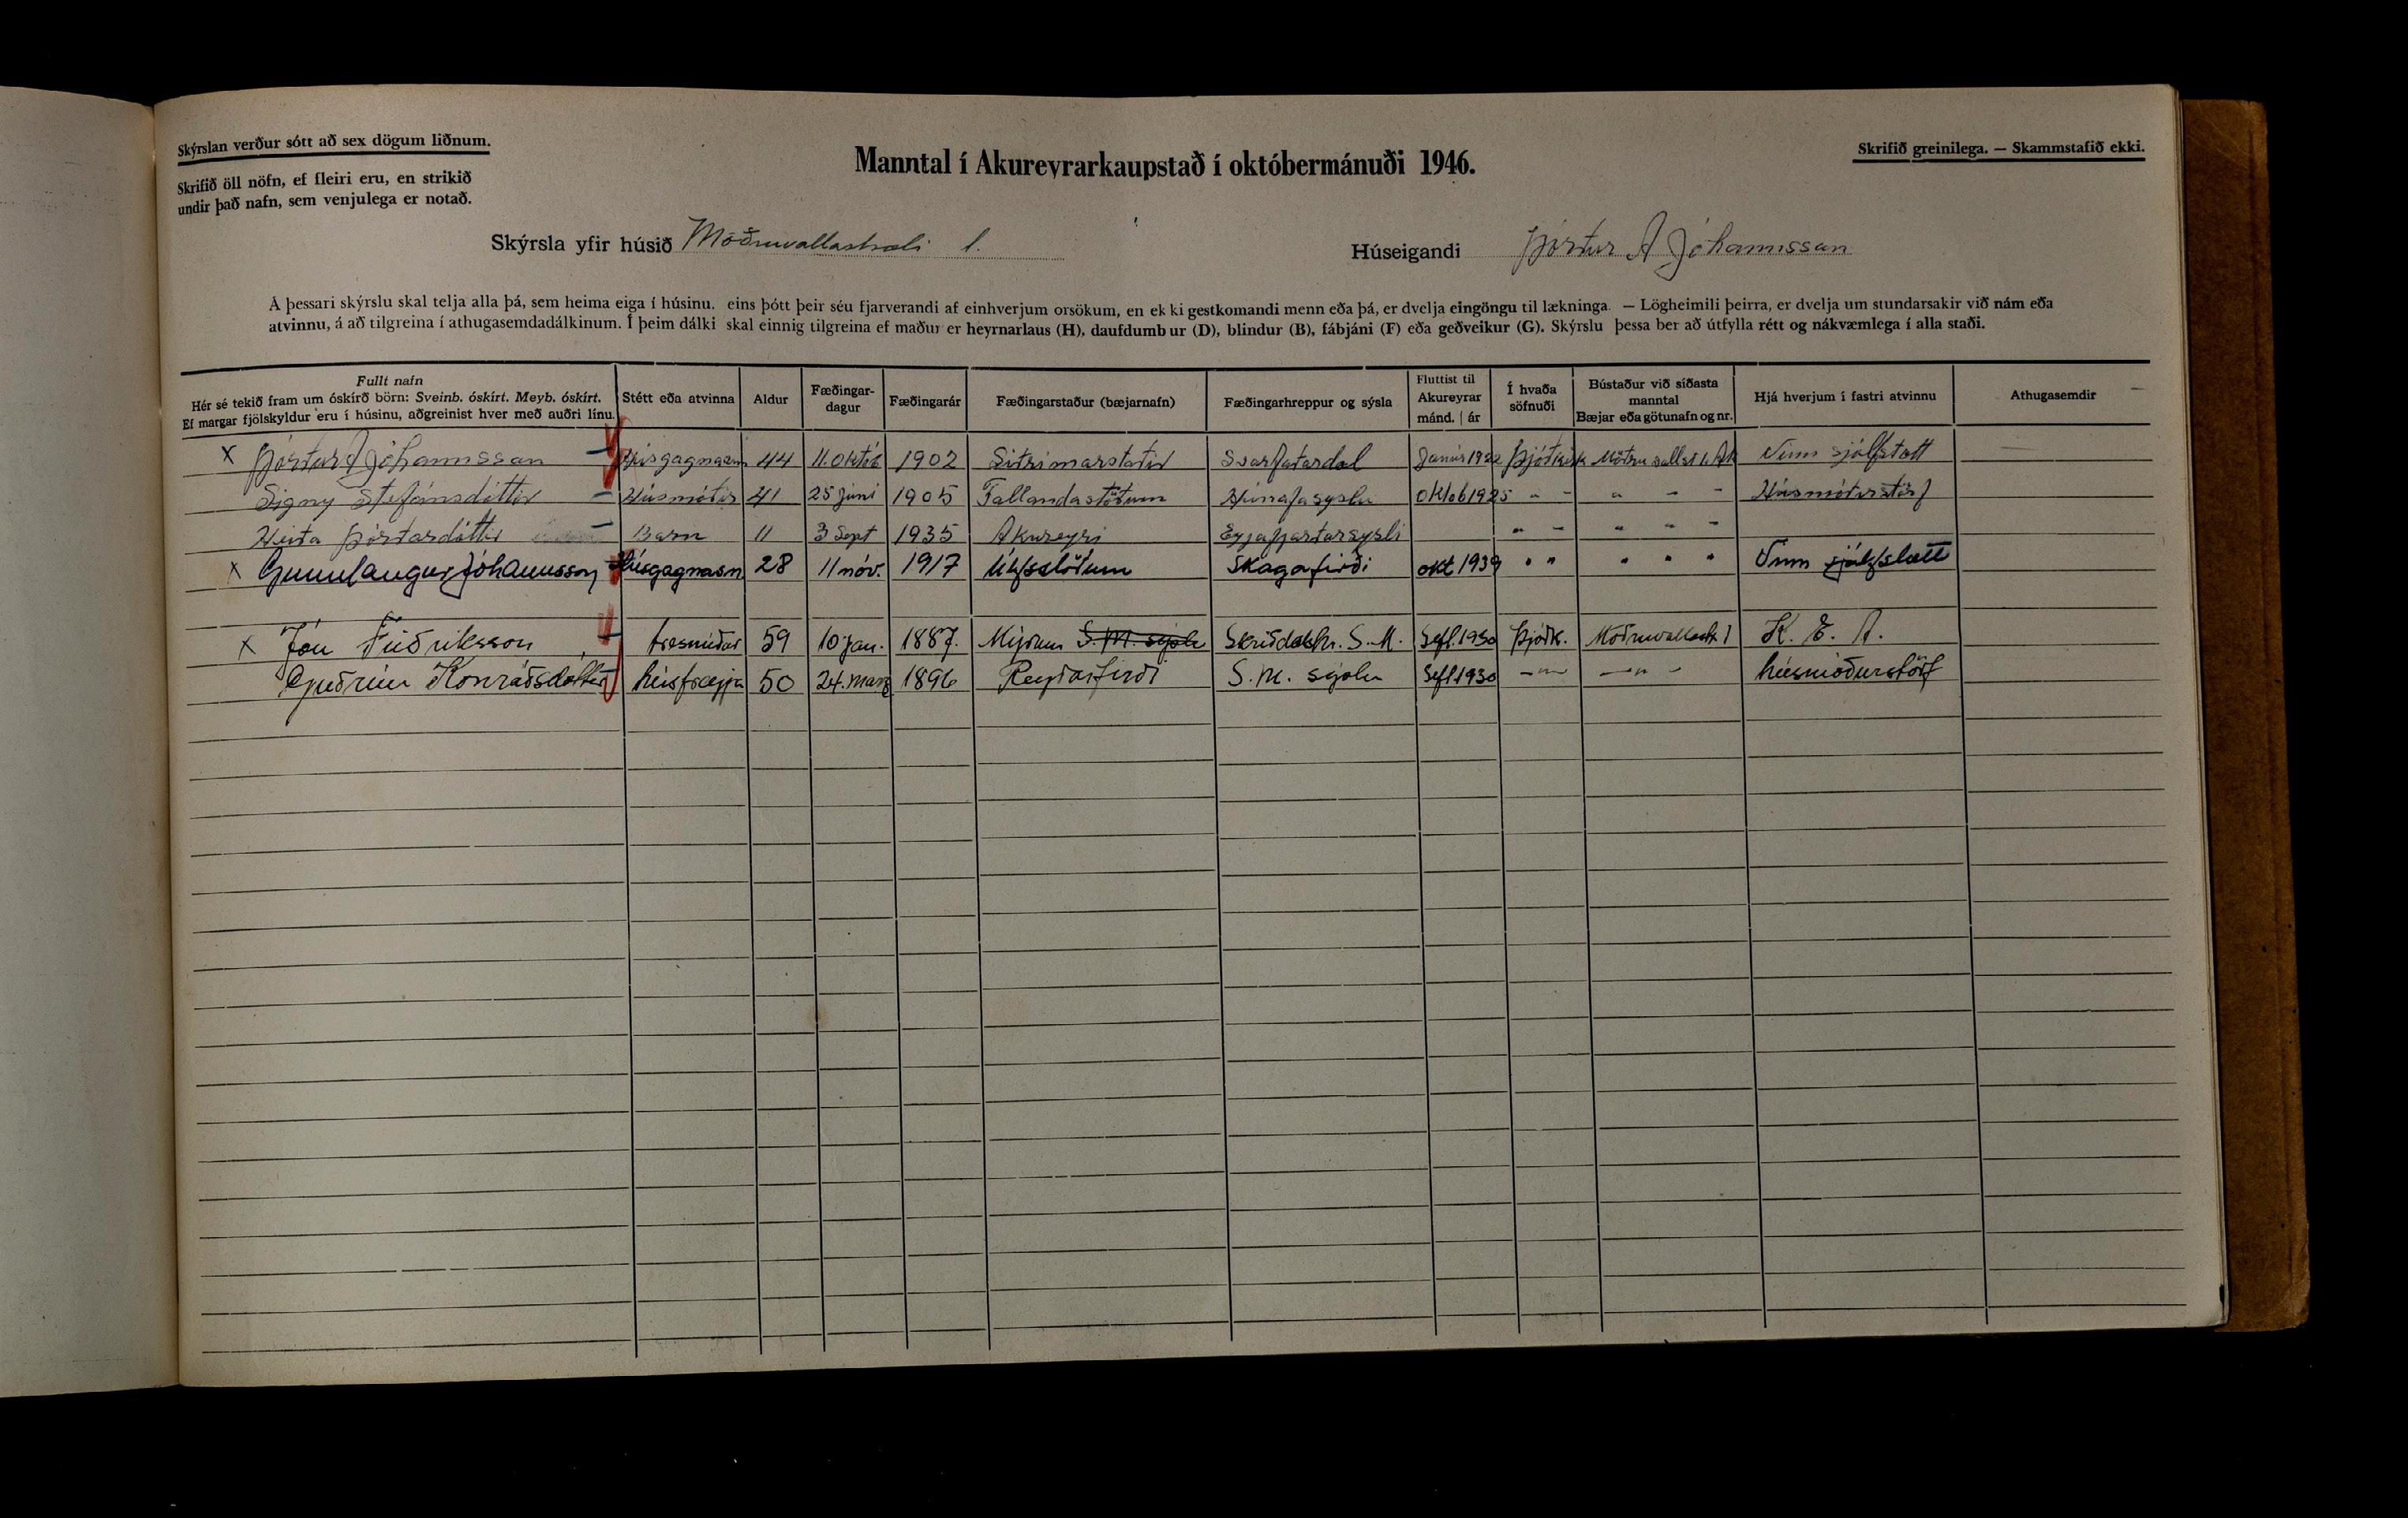 Skýrslan verður sótt að sex dögum liðnum.
Skrifið öll nöfn, ef fleiri eru, en strikið
undir það nafn, sem venjulega er notað.
Manntal í Akureyrarkaupstað í októbermánuði 1946.
Skrifið greinilega. — Skammstafið ekki.
Skýrsla yfir húsið Möðruvallastræti 1.
Húseigandi Þórtur A Jóhannsson
Á þessari skýrslu skal telja alla þá, sem heima eiga í húsinu, eins þótt þeir séu fjarverandi af einhverjum orsökum, en ekki gestkomandi menn eða þá, er dvelja eingöngu til lækninga. — Lögheimili þeirra, er dvelja um stundarsakir við nám eða
atvinnu, á að tilgreina í athugasemdadálkinum. Í þeim dálki skal einnig tilgreina ef maður er heyrnarlaus (H), daufdumbur (D), blindur (B), fábjáni (F) eða geðveikur (G). Skýrslu þessa ber að útfylla rétt og nákvæmlega í alla staði.
Fullt nafn
Hér sé tekið fram um óskírð börn: Sveinb. óskírt. Meyb. óskírt.
Ef margar fjölskyldur eru í húsinu, aðgreinist hver með auðri línu.
Stétt eða atvinna
Aldur
Fæðingar-
dagur
Fæðingarár
Fæðingarstaður (bæjarnafn)
Fæðingarhreppur og sýsla
Fluttist til
Akureyrar
mánd. | ár
Í hvaða
söfnuði
Bústaður við síðasta
manntal
Bæjar eða götunafn og nr.
Hjá hverjum í fastri atvinnu
Athugasemdir
x Þórtur A Jóhannsson 44 11. Októb 1902 Svarfatardal Vinn sjálfstatt
Signy Stefánsdóttir Húsmótir 41 25 júni 1905 Oktob 1925 " - " - - Húsmóturstörf
Heita Þórtardóttir Barn 11 3 Sept 1935 Akureyri Eyjafjartarsysli " - " " -
x Gunnlaugur Jóhannsson Húsgagnasm 28 11 nóv. 1917 Skagafirði okt 1939 " " " " " Vinn sjálfstætt
x Jón Friðriksson tresmiður 59 10 jan. 1887. Mýrum S.M. sýslu Skriðdalshr. S.M. Sept. 1930 Þjóðk. Möðruvallastr. 1 K. E. A.
Guðrún Konráðsdóttir húsfreyja 50 24. marz 1896 Reyðarfirði S.M. sýslu Sept 1930 -"- -"- húsmóðurstörf